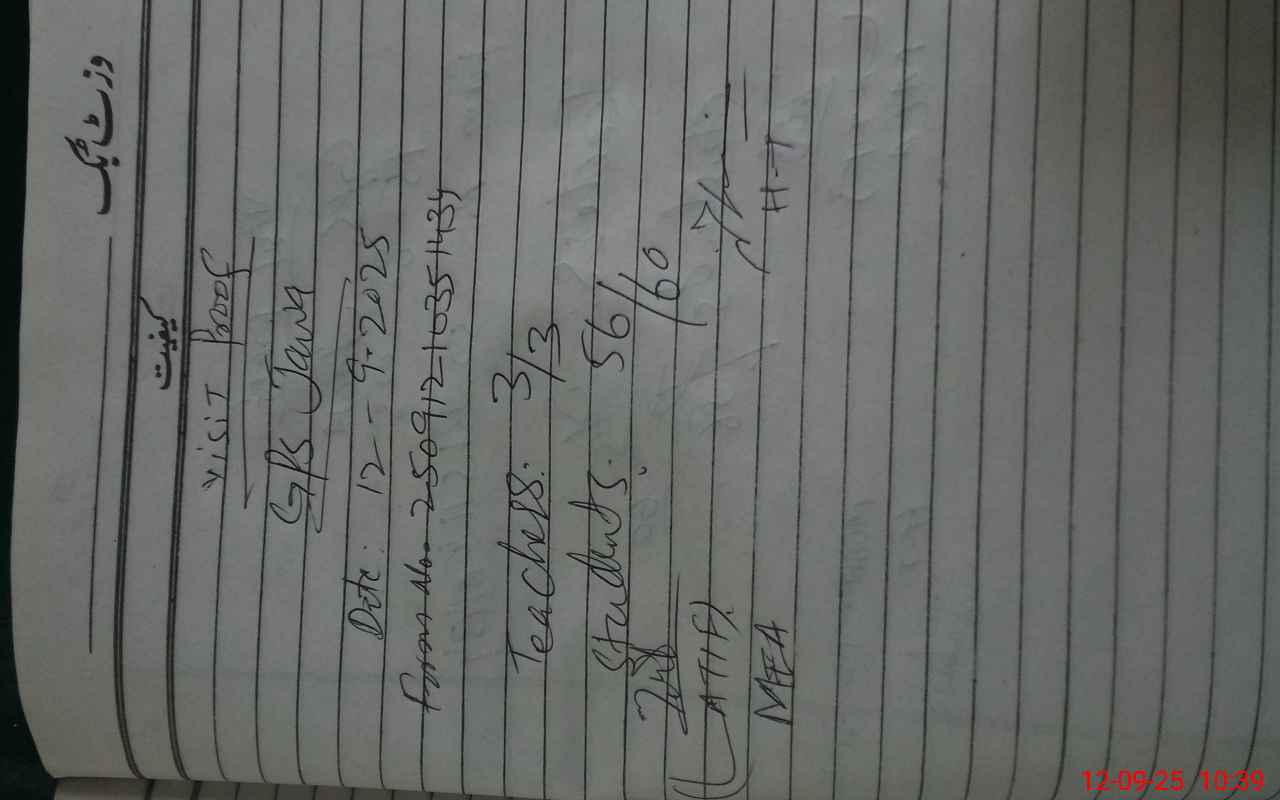 وزٹ بک
کیفیت
Visit Proof
GPS Jawa
Date: 12-9-2025
Form No. 250912-1035143y
Teachers: 3/3
Students: 56/60
(LATIF)
MEA
H-T
12-09-25 10:39